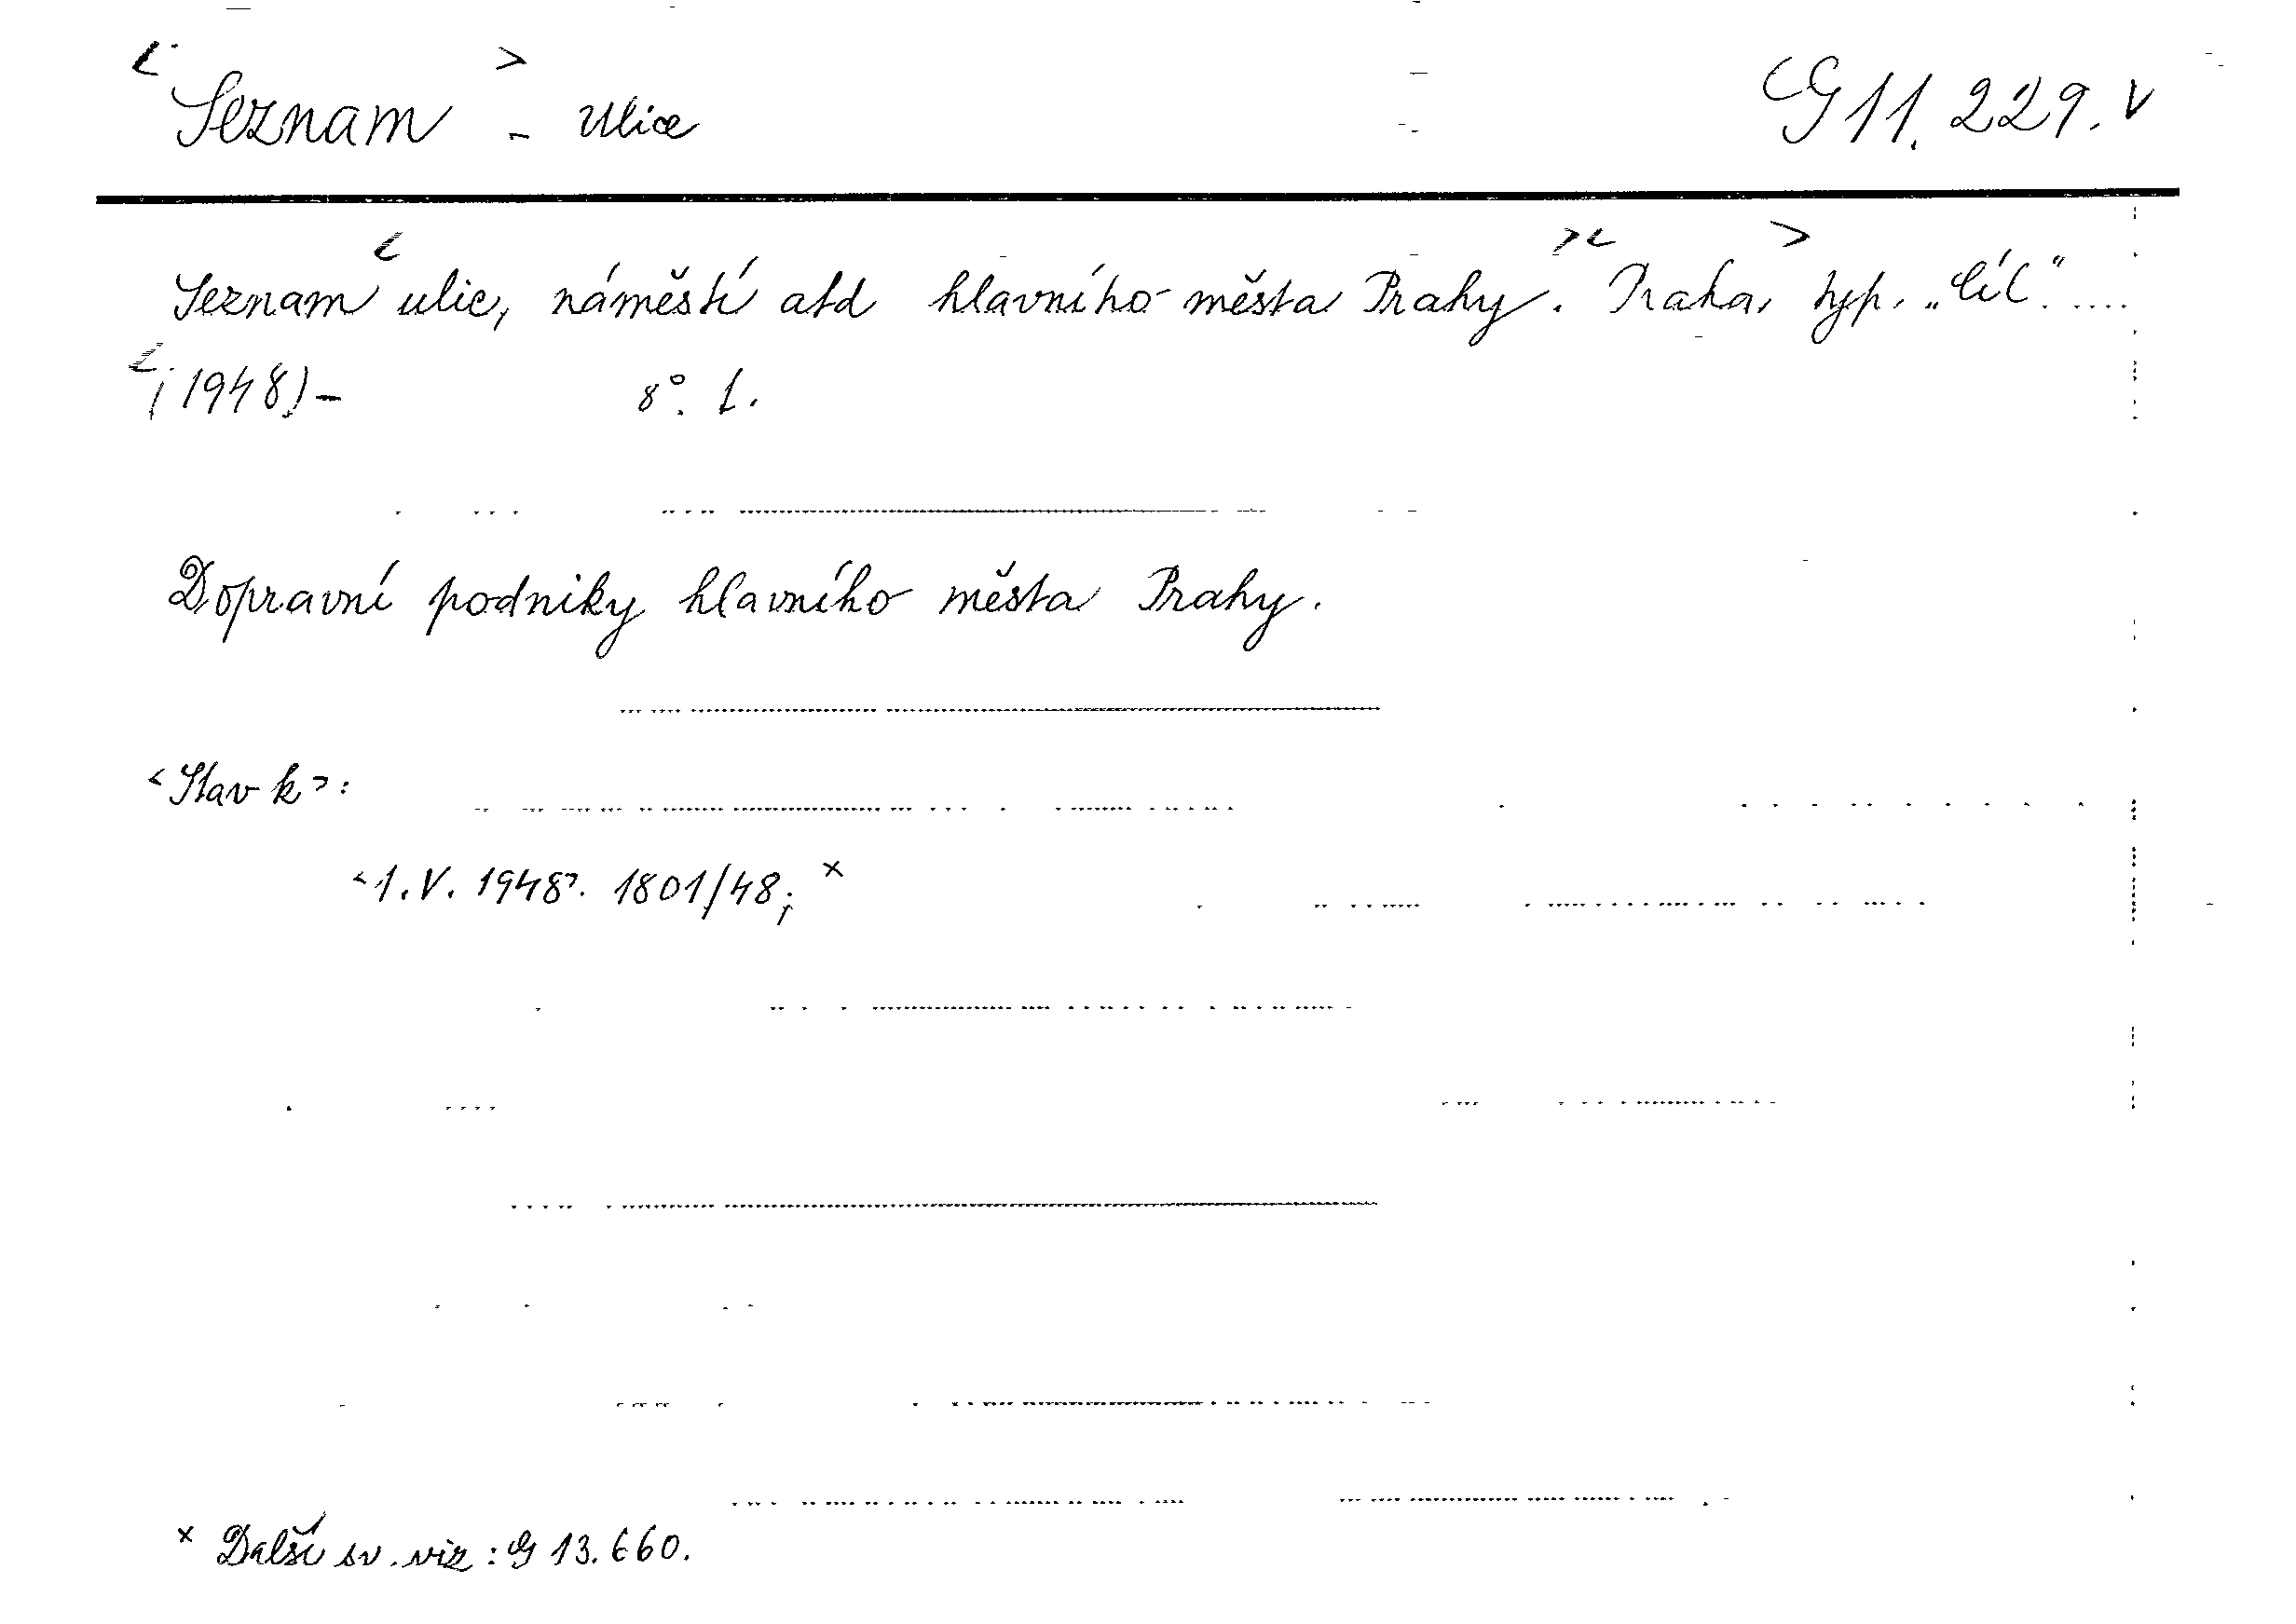 <Seznam> - Ulice G 11.229.V
Seznam <ulic, náměstí atd hlavního města Prahy>. <Praha>, typ. „Cíl“. ....
<(1948)- 8°. l.
Dopravní podniky hlavního města Prahy.
<Stav k>:
<1. V. 1948>. 1801/48; x
x Další sv. viz: G 13.660.